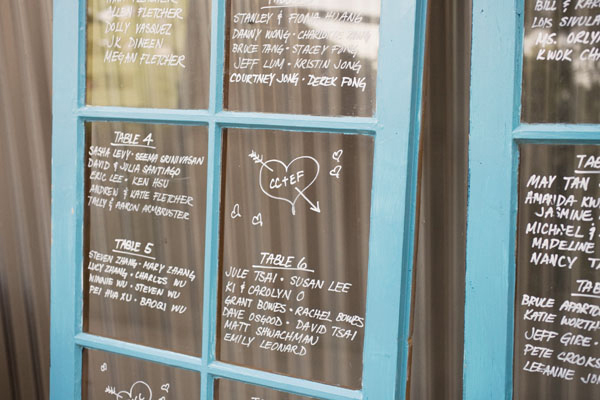 ALLAN FLETCHER
DOLLY VASQUEZ
JK DINEEN
MEGAN FLETCHER
STANLEY & FIONA HUANG
DANNY WONG •
BRUCE TANG • STACEY FONG
JEFF LUM • KRISTIN JONG
COURTNEY JONG • DEREK FONG
TABLE 4
SASHA LEVY • SEEMA SRINIVASAN
DAVID & JULIA SANTIAGO
ERIC LEE • KEN HSU
ANDREN & KATIE FLETCHER
TALLY & AARON ARMBRUSTER
CC+EF
TABLE 5
STEVEN ZHANG • MARY ZHANG
LUCY ZHANG • CHARLES WU
WINNIE WU • STEVEN WU
PEI HUA XU • BAOQI WU
TABLE 6
JULE TSAI • SUSAN LEE
KI & CAROLYN O
GRANT BOWES • RACHEL BOWES
DAVE OSGOOD • DAVID TSAI
MATT SHWACHMAN
EMILY LEONARD
BILL & KA
LOIS SIVULA
MS. ORLY
KWOK CHA
TA
MAY TAN &
AMANDA KW
JASMINE
MICHAEL &
MADELINE
NANCY TA
TAB
BRUCE APART
KATIE WORTH
JEFF GIRE •
PETE CROOKS
LEEANNE JON